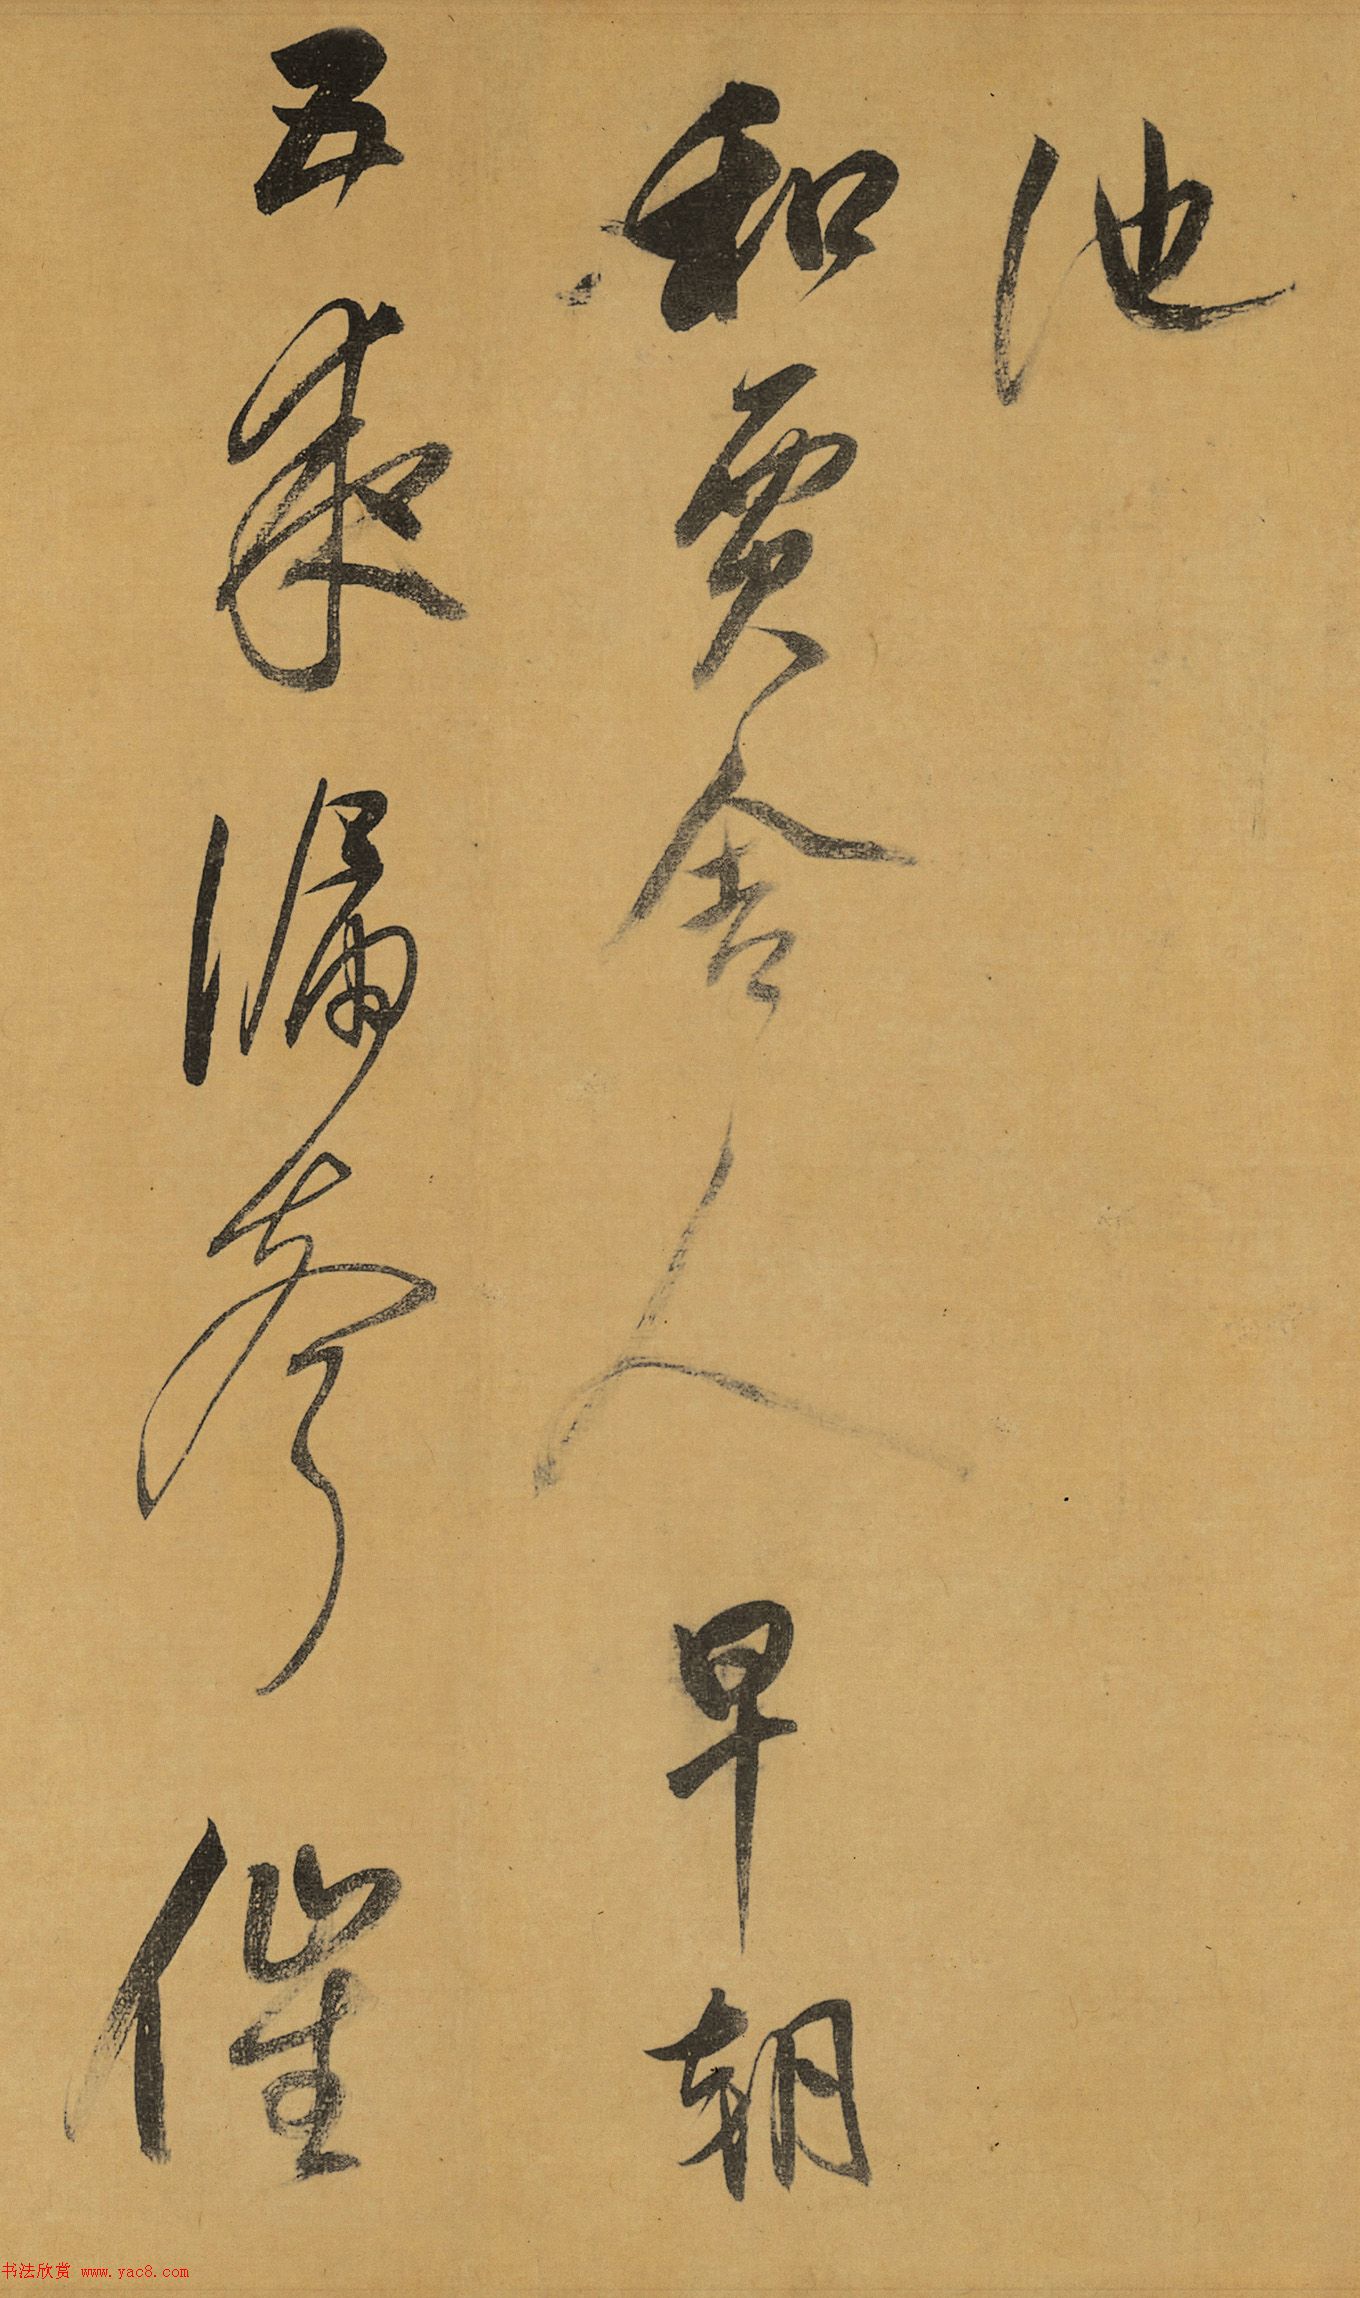 池
和賈舍人早朝
五夜漏聲催
书法欣赏 www.yac8.com